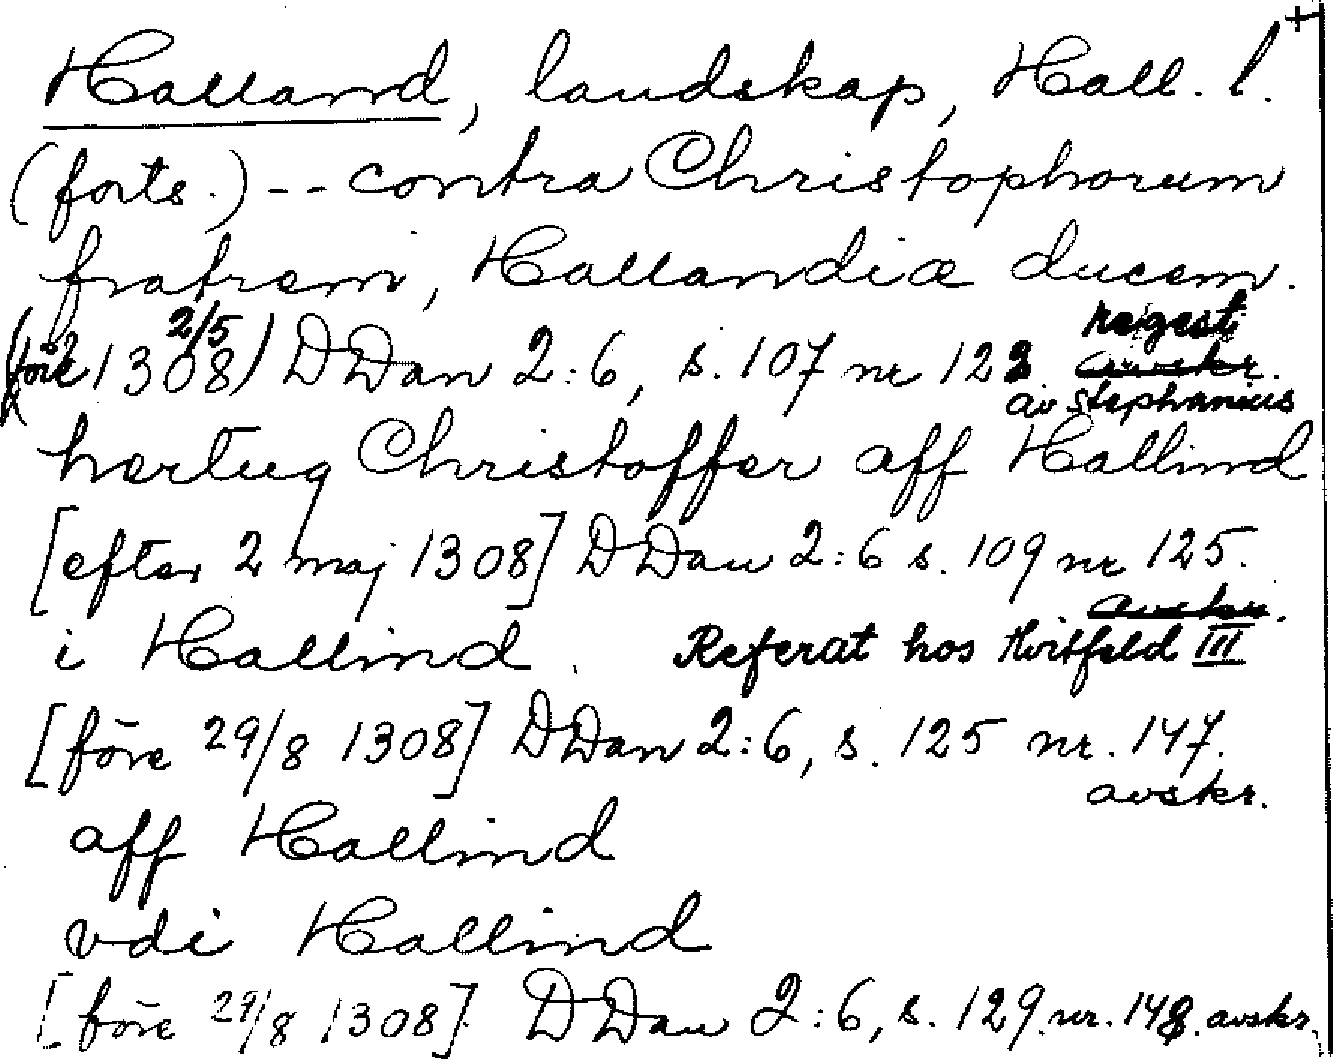 +
Halland, landskap, Hall. l.
(forts.) -- contra Christophorum
fratrem, Hallandiæ ducem.
(före 2/5 1308) DDan 2:6, s. 107 nr 123. regest
av Stephanius
hertug Christoffer aff Hallind
[efter 2 maj 1308] DDan 2:6 s. 109 nr 125.
avskr.
i Hallind. Referat hos Hvitfeld III
[före 29/8 1308] DDan 2:6, s. 125 nr. 147.
avskr.
aff Hallind
vdi Hallind
[före 29/8 1308] DDan 2:6, s. 129. nr. 148. avskr.